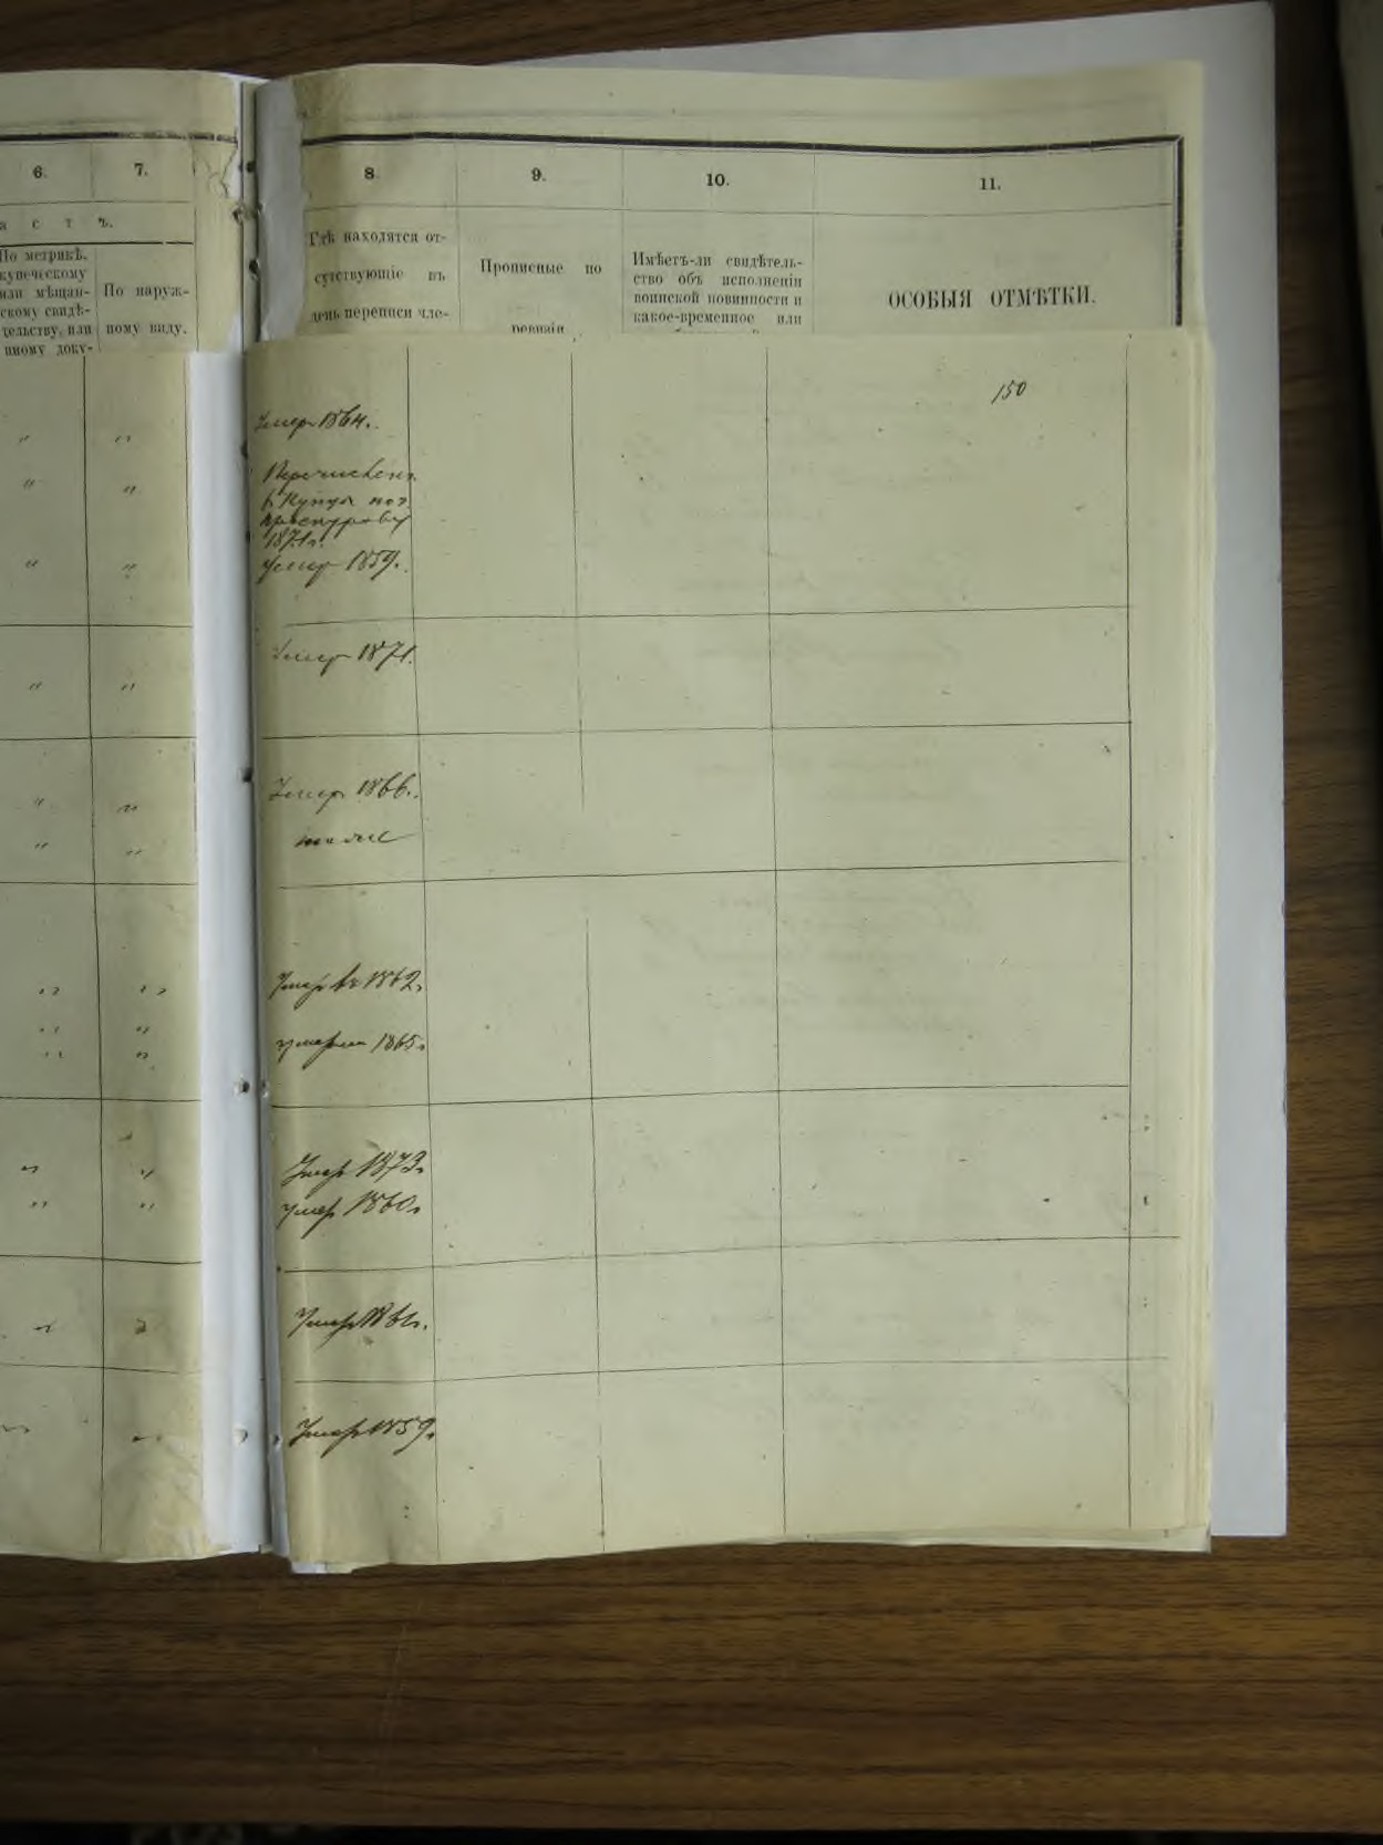 6.
7.
а с т ъ.
По метрикѣ,
купеческому
или мѣщан-
скому свидѣ-
тельству, или
иному доку-
По наруж-
ному виду.
8
Гдѣ находятся от-
сутствующіе въ
день переписи чле-
9.
Прописные по
ревизіи
10.
Имѣетъ-ли свидѣтель-
ство объ исполненіи
воинской повинности и
какое-временное или
11.
ОСОБЫЯ ОТМѢТКИ.
150
" "
Умер 1864.
" "
Перечислен
в Купцы поз
Проскурову
1871г.
" "
Умер 1859.
" "
Умер 1871.
" "
Умер 1866.
" "
тоже
" "
Умер въ 1862.
" "
" "
умерли 1865г
" "
Умер 1873г
" "
умер 1860г
" "
Умер 1861г.
" "
Умер 1859г